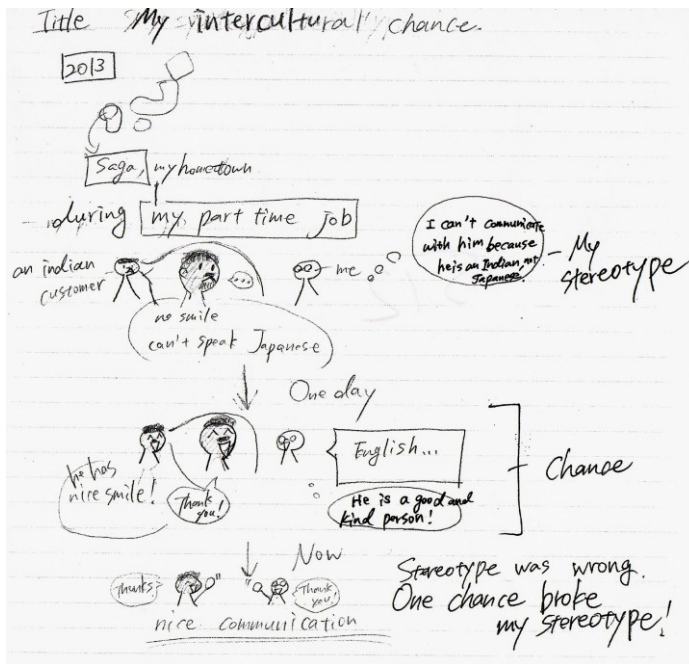 Title "My intercultural" chance.
2013
Saga, my hometown
during my part time job
an indian
customer
...
me
I can't communicate
with him because
he is an Indian, not
Japanese.
My
stereotype
no smile
can't speak Japanese
One day
he has
nice smile!
Thank
you!
English...
He is a good and
kind person!
Chance
Now
Thanks
Thank
you!
nice communication
Stereotype was wrong.
One chance broke
my stereotype!